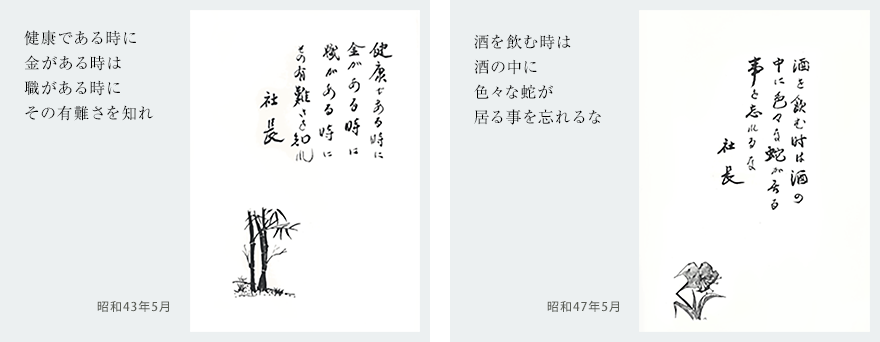 健康である時に
金がある時は
職がある時に
その有難さを知れ
健康である時に
金がある時は
職がある時に
その有難さを知れ
社長
昭和43年5月
酒を飲む時は
酒の中に
色々な蛇が
居る事を忘れるな
酒を飲む時は酒の
中に色々な蛇が居る
事を忘れるな
社長
昭和47年5月